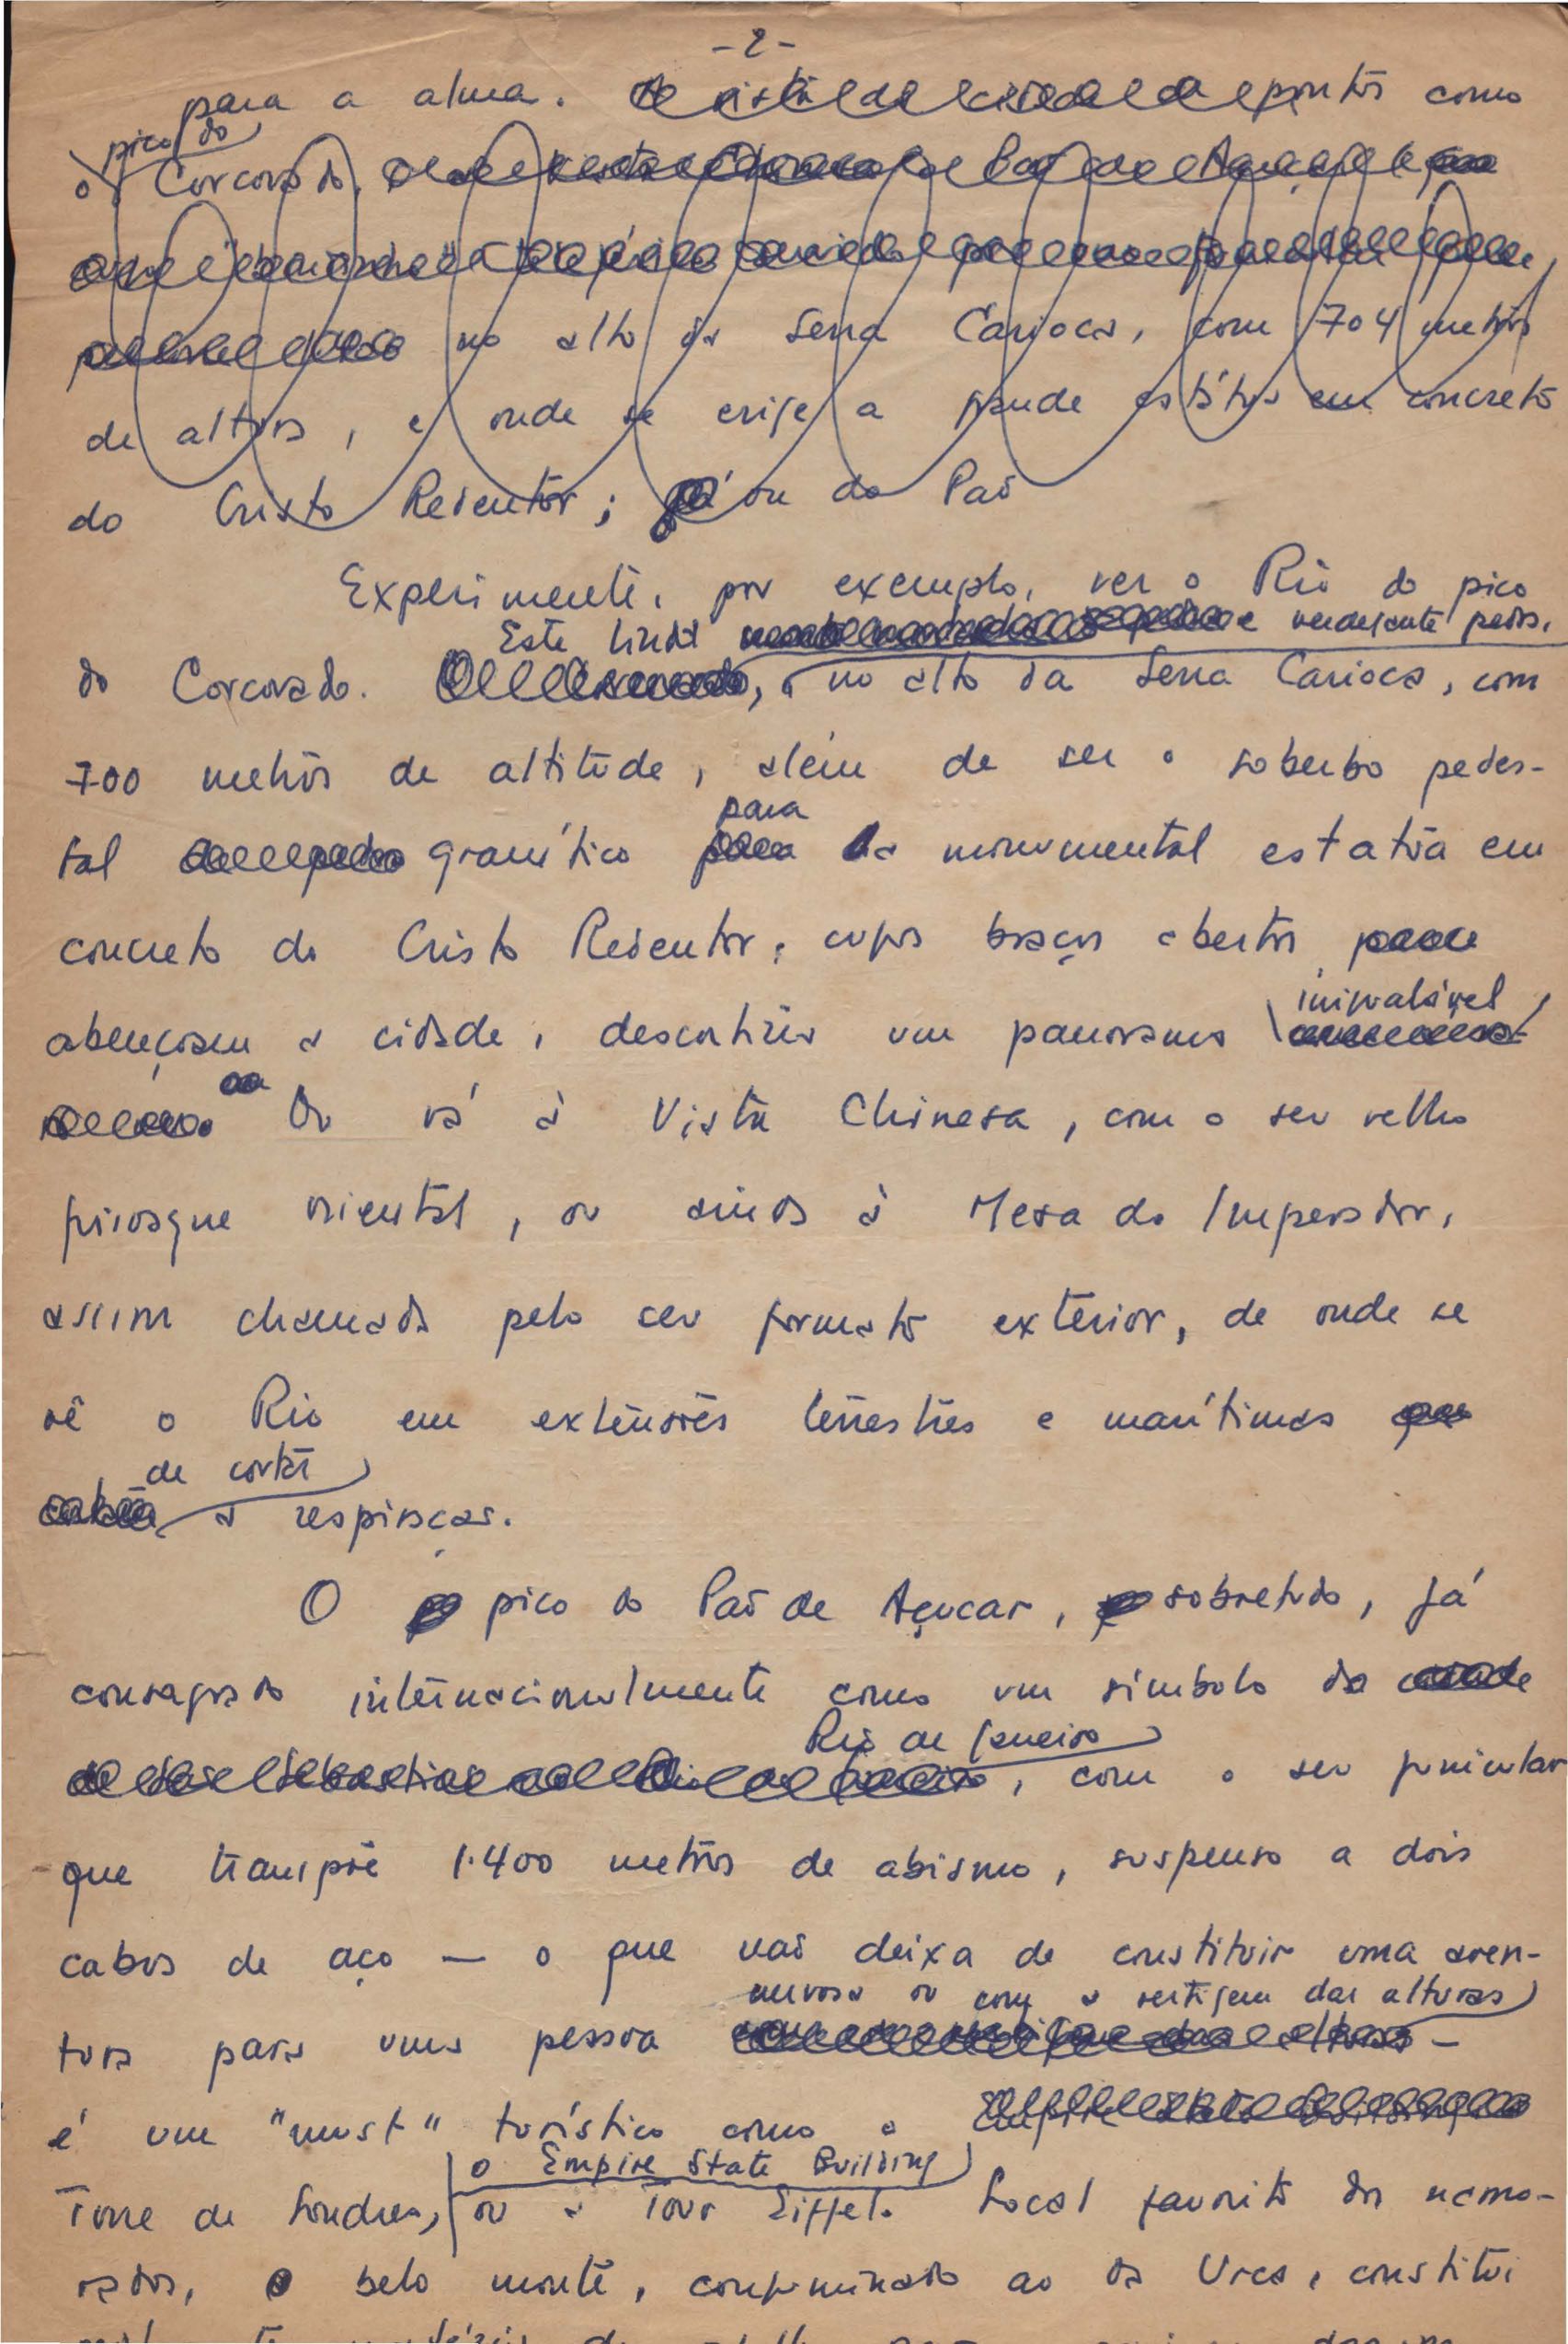 -2-
para a alma. pontos como
pico do
o Corcovado,
no alto da Serra Carioca, com 704 metros
de altura, e onde se erige a grande estátua em concreto
do Cristo Redentor; ou do Pão
Experimente, por exemplo, ver o Rio do pico
Este linda e verdejante pedra,
do Corcovado. no alto da Serra Carioca, com
700 metros de altitude, além de ser o soberbo pedes-
para
tal granítico da monumental estatua em
concreto do Cristo Redentor, cujos braços abertos
inigualável
abençoam a cidade, descortina um panorama
Ou vá à Vista Chinesa, com o seu velho
quiosque oriental, ou ainda à Mesa do Imperador,
assim chamada pelo seu formato exterior, de onde se
vê o Rio em extensões terrestres e marítimas
de cortar
a respiração.
O pico do Pão de Açucar, sobretudo, já
consagrado internacionalmente como um símbolo do
Rio de Janeiro
, com o seu funicular
que transpõe 1.400 metros de abismo, suspenso a dois
cabos de aço — o que não deixa de constituir uma aven-
nervosa ou com a vertigem das alturas
tura para uma pessoa —
é um "must" turístico como a Empire State Building
o Empire State Building
Torre de Londres, ou a Tour Eiffel. Local favorito dos namo-
rados, o belo monte, conjuminado ao da Urca, constitui